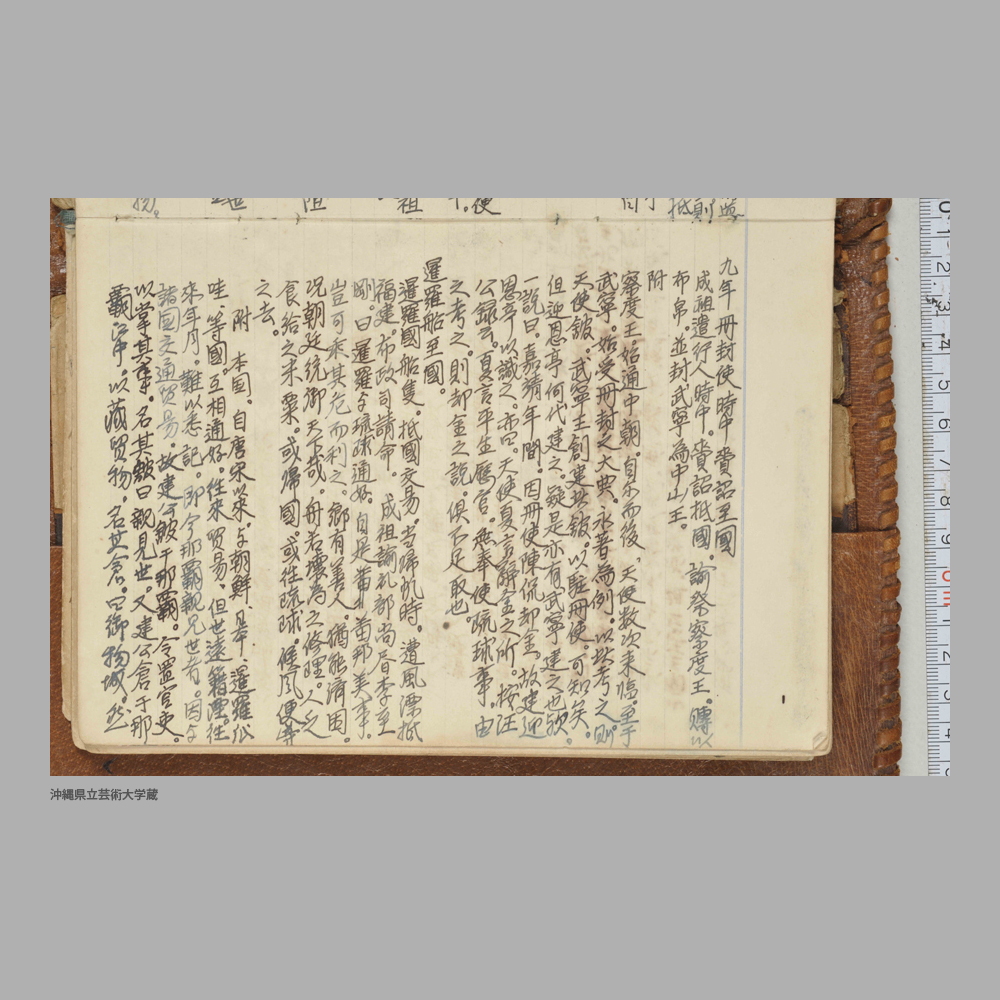 九年冊封使時中賚詔至國
成祖遣行人時中。賚詔抵國。諭祭察度王。賻以
布帛。並封武寧為中山王。
附
察度王。始通中朝。自尓而後、天使數次来臨。至于
武寧。始受冊封之大典、永著為例。以此考之。則
天使館。武寧王創建此館。以駐冊使。可知矣。
但迎恩亭何代建之。疑是亦有武寧建之也歟。
一說曰。嘉靖年間。因冊使陳侃却金。故建迎
恩亭以識之。亦曰。天使夏言辭金之所。按汪
公録云。夏言平生歷官。無奉使琉球事。由
之考之。則却金之說。俱不足取也。
暹羅船至國。
暹羅國船隻。抵國交易。当歸帆時。遭風漂抵
福建。布政司請命。成祖諭礼部尚書李至
剛。曰暹羅与琉球通好。自是番邦美事。
豈可乘其危而利之。鄉有善人。猶能濟困。
况朝廷統御天下哉。舟若壞為之修理。人乏
食給之米粟。或帰國。或往琉球。俟風便導
之去。
附 本国。自唐宋以来、与朝鮮、日本、暹羅、瓜
哇、等國。互相通好。往来貿易。但世遠籍湮。往
来年月。難以悉記。即今那霸親見世者。因与
諸国交通貿易。故建公館于那霸。令置官吏。
以掌其事。名其館曰親見世。又建公倉于那
霸江中。以藏貿物。名其倉。曰御物城。然